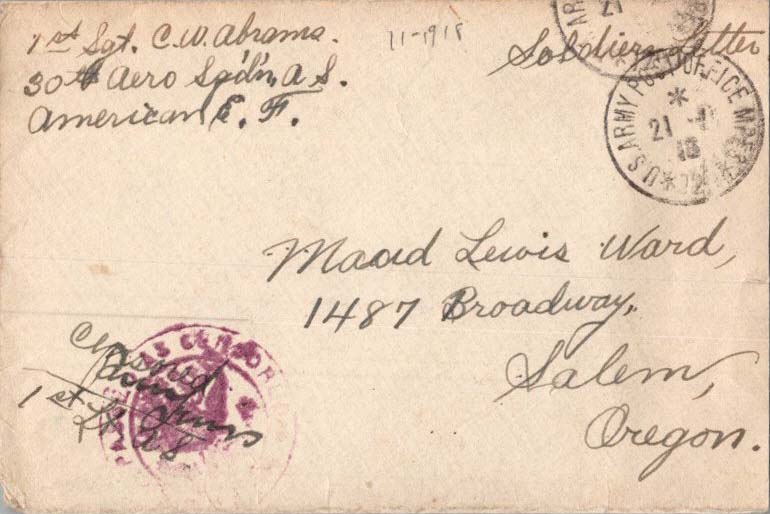 1st Sgt. C.W. Abrams.
30th Aero Sqd'n, A.S.
American E. F.
11-1918
Soldiers Letter
21
U.S. ARMY POST OFFICE M.P.E.S.
21
18
Maud Lewis Ward,
1487 Broadway,
Salem,
Oregon.
Censored
1st Lt
AS
CENSOR